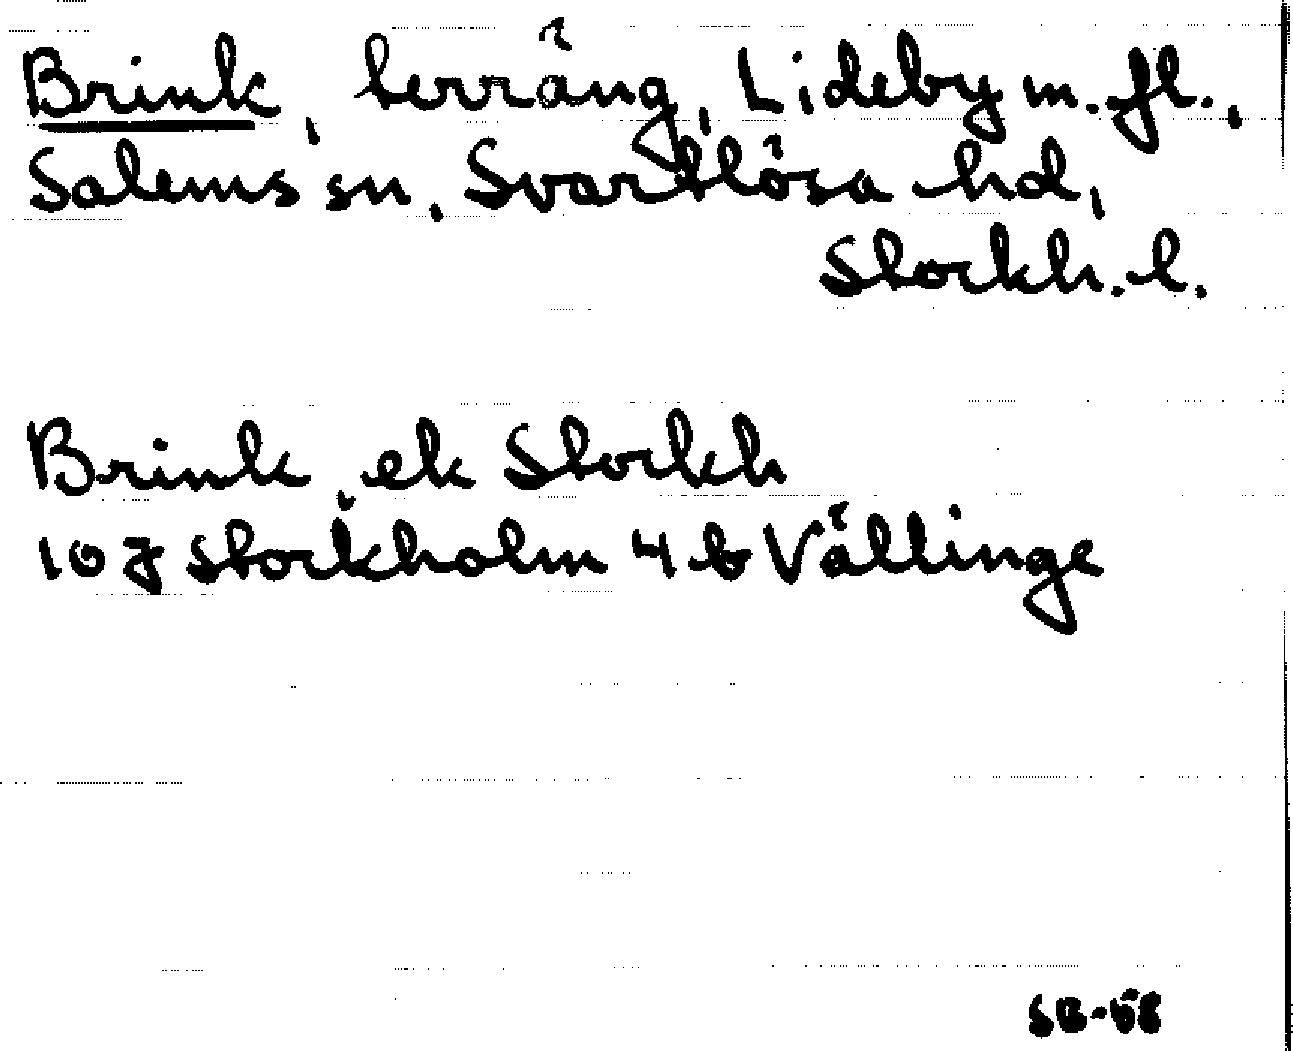 Brink, terräng, Lideby m.fl.,
Salems sn, Svartlösa hd,
Stockh. l.
Brink, ek Stockh
10J Stockholm 4b Vällinge